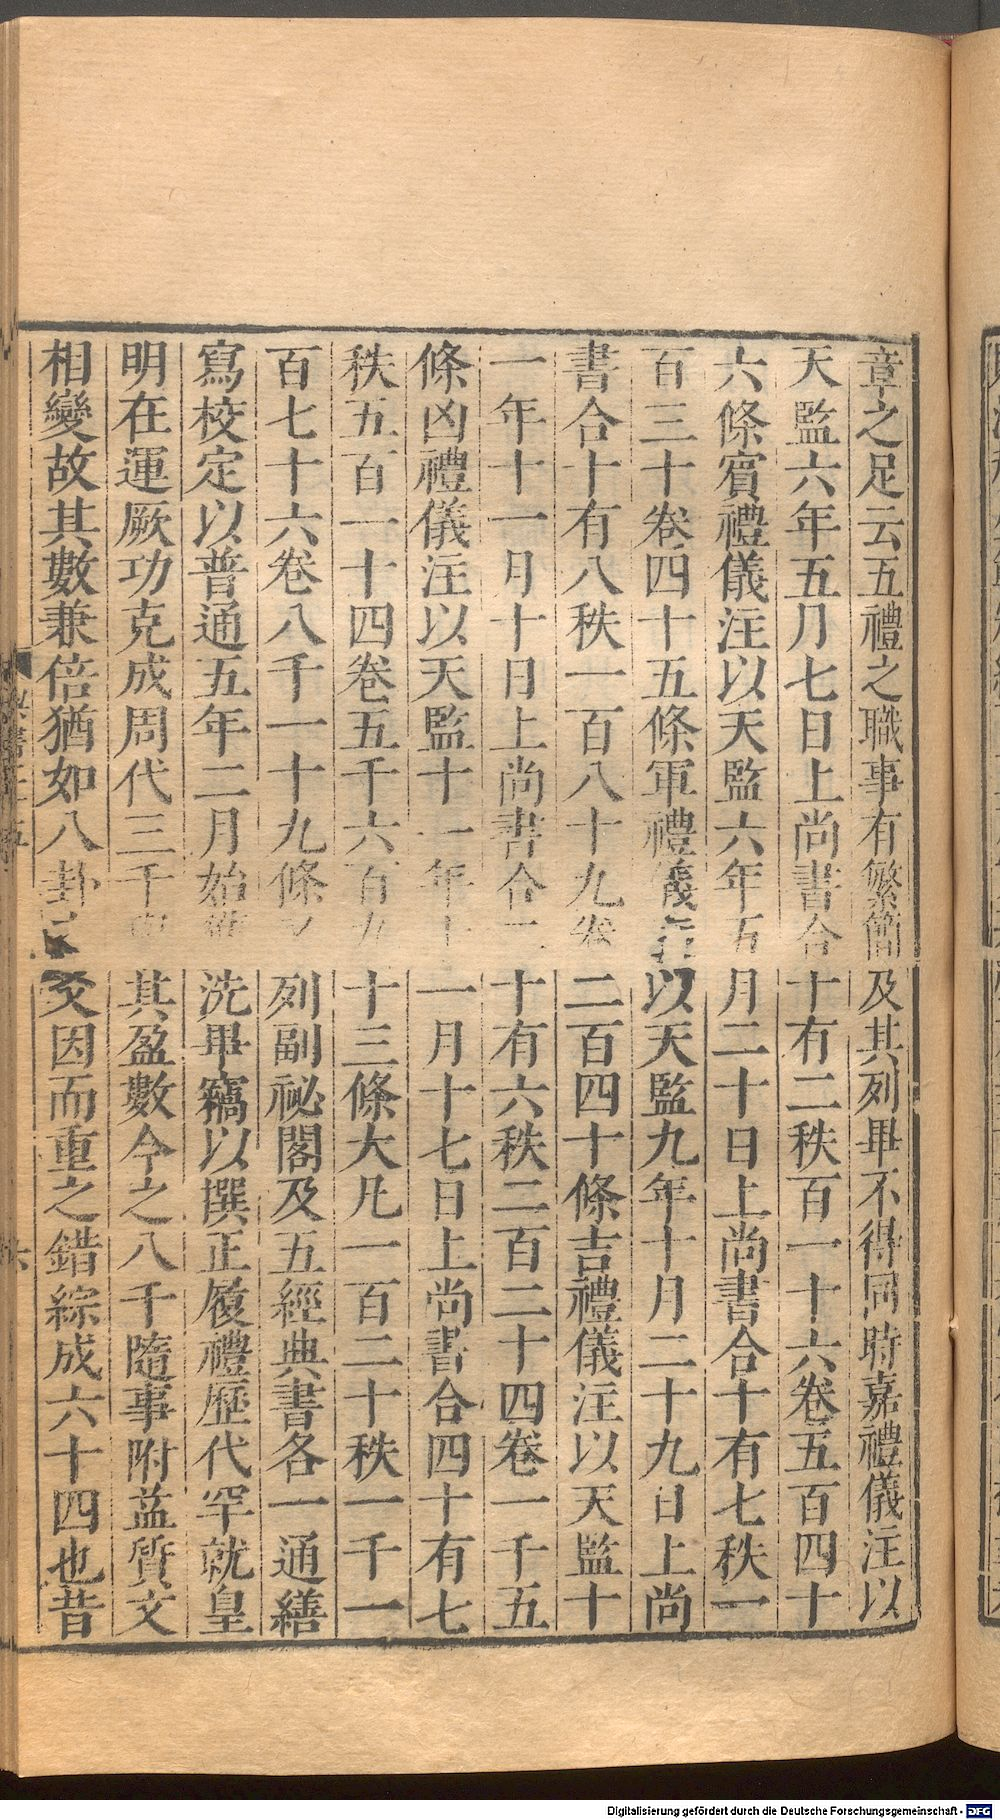 章之足云五禮之職事有繁簡及其列畢不得同時嘉禮儀注以
天監六年五月七日上尚書合十有二秩百一十六卷五百四十
六條賓禮儀注以天監六年五月二十日上尚書合十有七秩一
百三十卷四十五條軍禮儀注以天監九年十月二十九日上尚
書合十有八秩一百八十九卷二百四十條吉禮儀注以天監十
一年十一月十日上尚書合二十有六秩二百二十四卷一千五
條凶禮儀注以天監十一年十一月十七日上尚書合四十有七
秩五百一十四卷五千六百九十三條大凡一百二十秩一千一
百七十六卷八千一十九條又列副祕閣及五經典書各一通繕
寫校定以普通五年二月始獲洗畢竊以撰正履禮歷代罕就皇
明在運厥功克成周代三千其盈數今之八千隨事附益質文
相變故其數兼倍猶如八卦之爻因而重之錯綜成六十四也昔
Digitalisierung gefördert durch die Deutsche Forschungsgemeinschaft - DFG